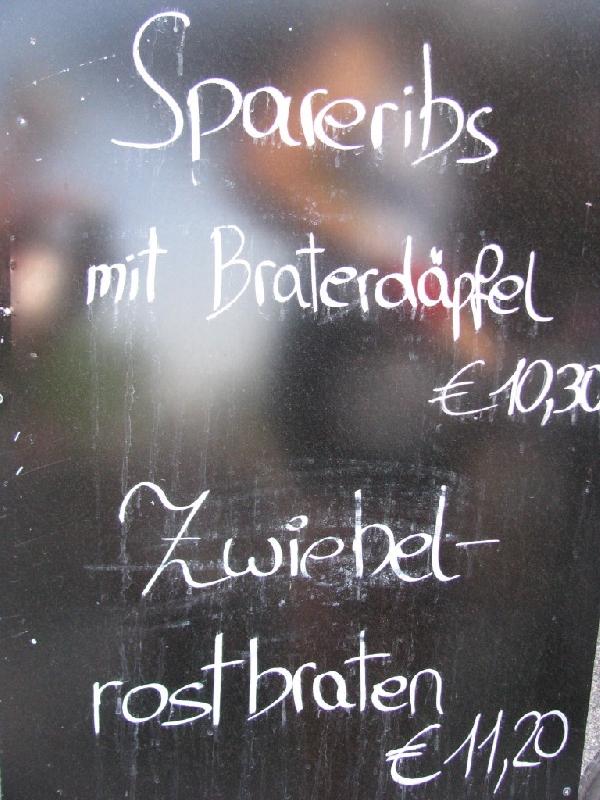 Spareribs
mit Braterdäpfel
€ 10,30
Zwiebel-
rostbraten
€ 11,20